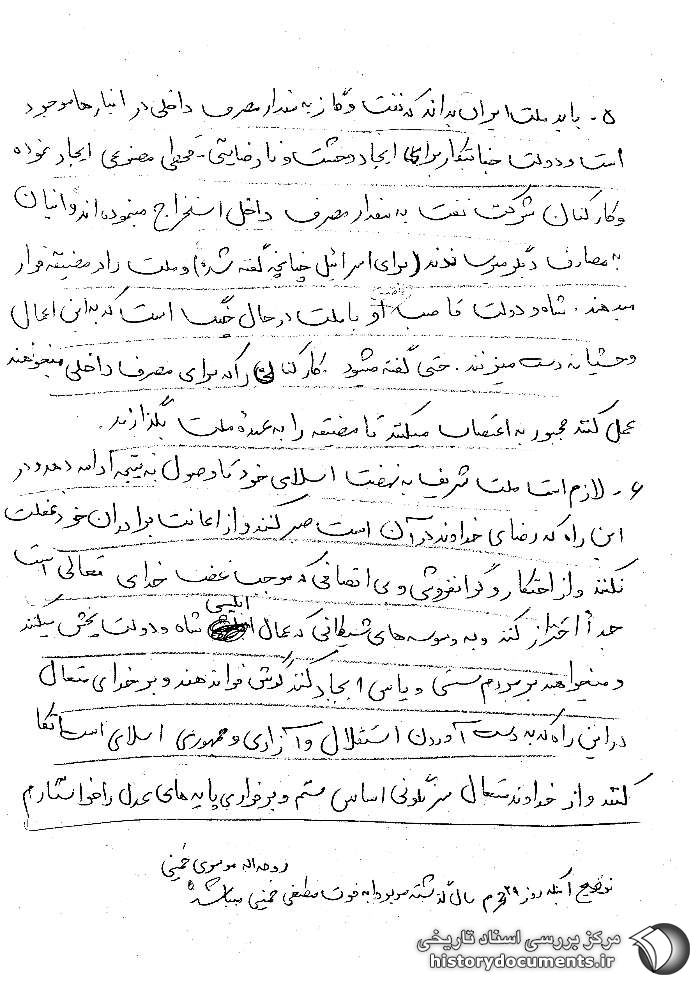 ۵ - باید ملت ایران بداند که نفت و گاز به مقدار مصرف داخلی در انبارها موجود
است و دولت خیانتکار برای ایجاد وحشت و نارضایتی - قحطی مصنوعی ایجاد نموده
و کارکنان شرکت نفت به مقدار مصرف داخل استخراج مینموده اند و اینان
به مصارف دیگر میرسانند (برای اسرائیل چنانچه گفته شده) و ملت را در مضیقه قرار
میدهند . شاه و دولت غاصب او با ملت در حال جنگ است که به این اعمال
وحشیانه دست میزنند . حتی گفته میشود . کارکنان را که برای مصرف داخلی میخواهند
عمل کنند مجبور به اعتصاب میکنند تا مضیقه را به عهدهٔ ملت بگذارند .
۶ - لازم است ملت شریف به نهضت اسلامی خود تا وصول به نتیجه ادامه دهد و در
این راه که رضای خداوند در آن است صبر کنند و از اعانت برادران خود غفلت
نکنند و از احتکار و گرانفروشی و بی انصافی که موجب غضب خدای تعالی است
جداً احتراز کنند و به وسوسه های شیطانی که عمال ابلیسی شاه و دولت پخش میکنند
و میخواهند بر مردم سستی و یاس ایجاد کنند گوش فرا ندهند و بر خدای متعال
در این راه که به دست آوردن استقلال و آزادی و جمهوری اسلامی است اتکا
کنند و از خداوند متعال سرنگونی اساس ستم و برقراری پایه های عدل را خواستارم
روح اله موسوی خمینی
توضیح آنکه روز ۲۹ محرم سال گذشته مربوط به فوت مصطفی خمینی میباشد
مرکز بررسی اسناد تاریخی
historydocuments.ir